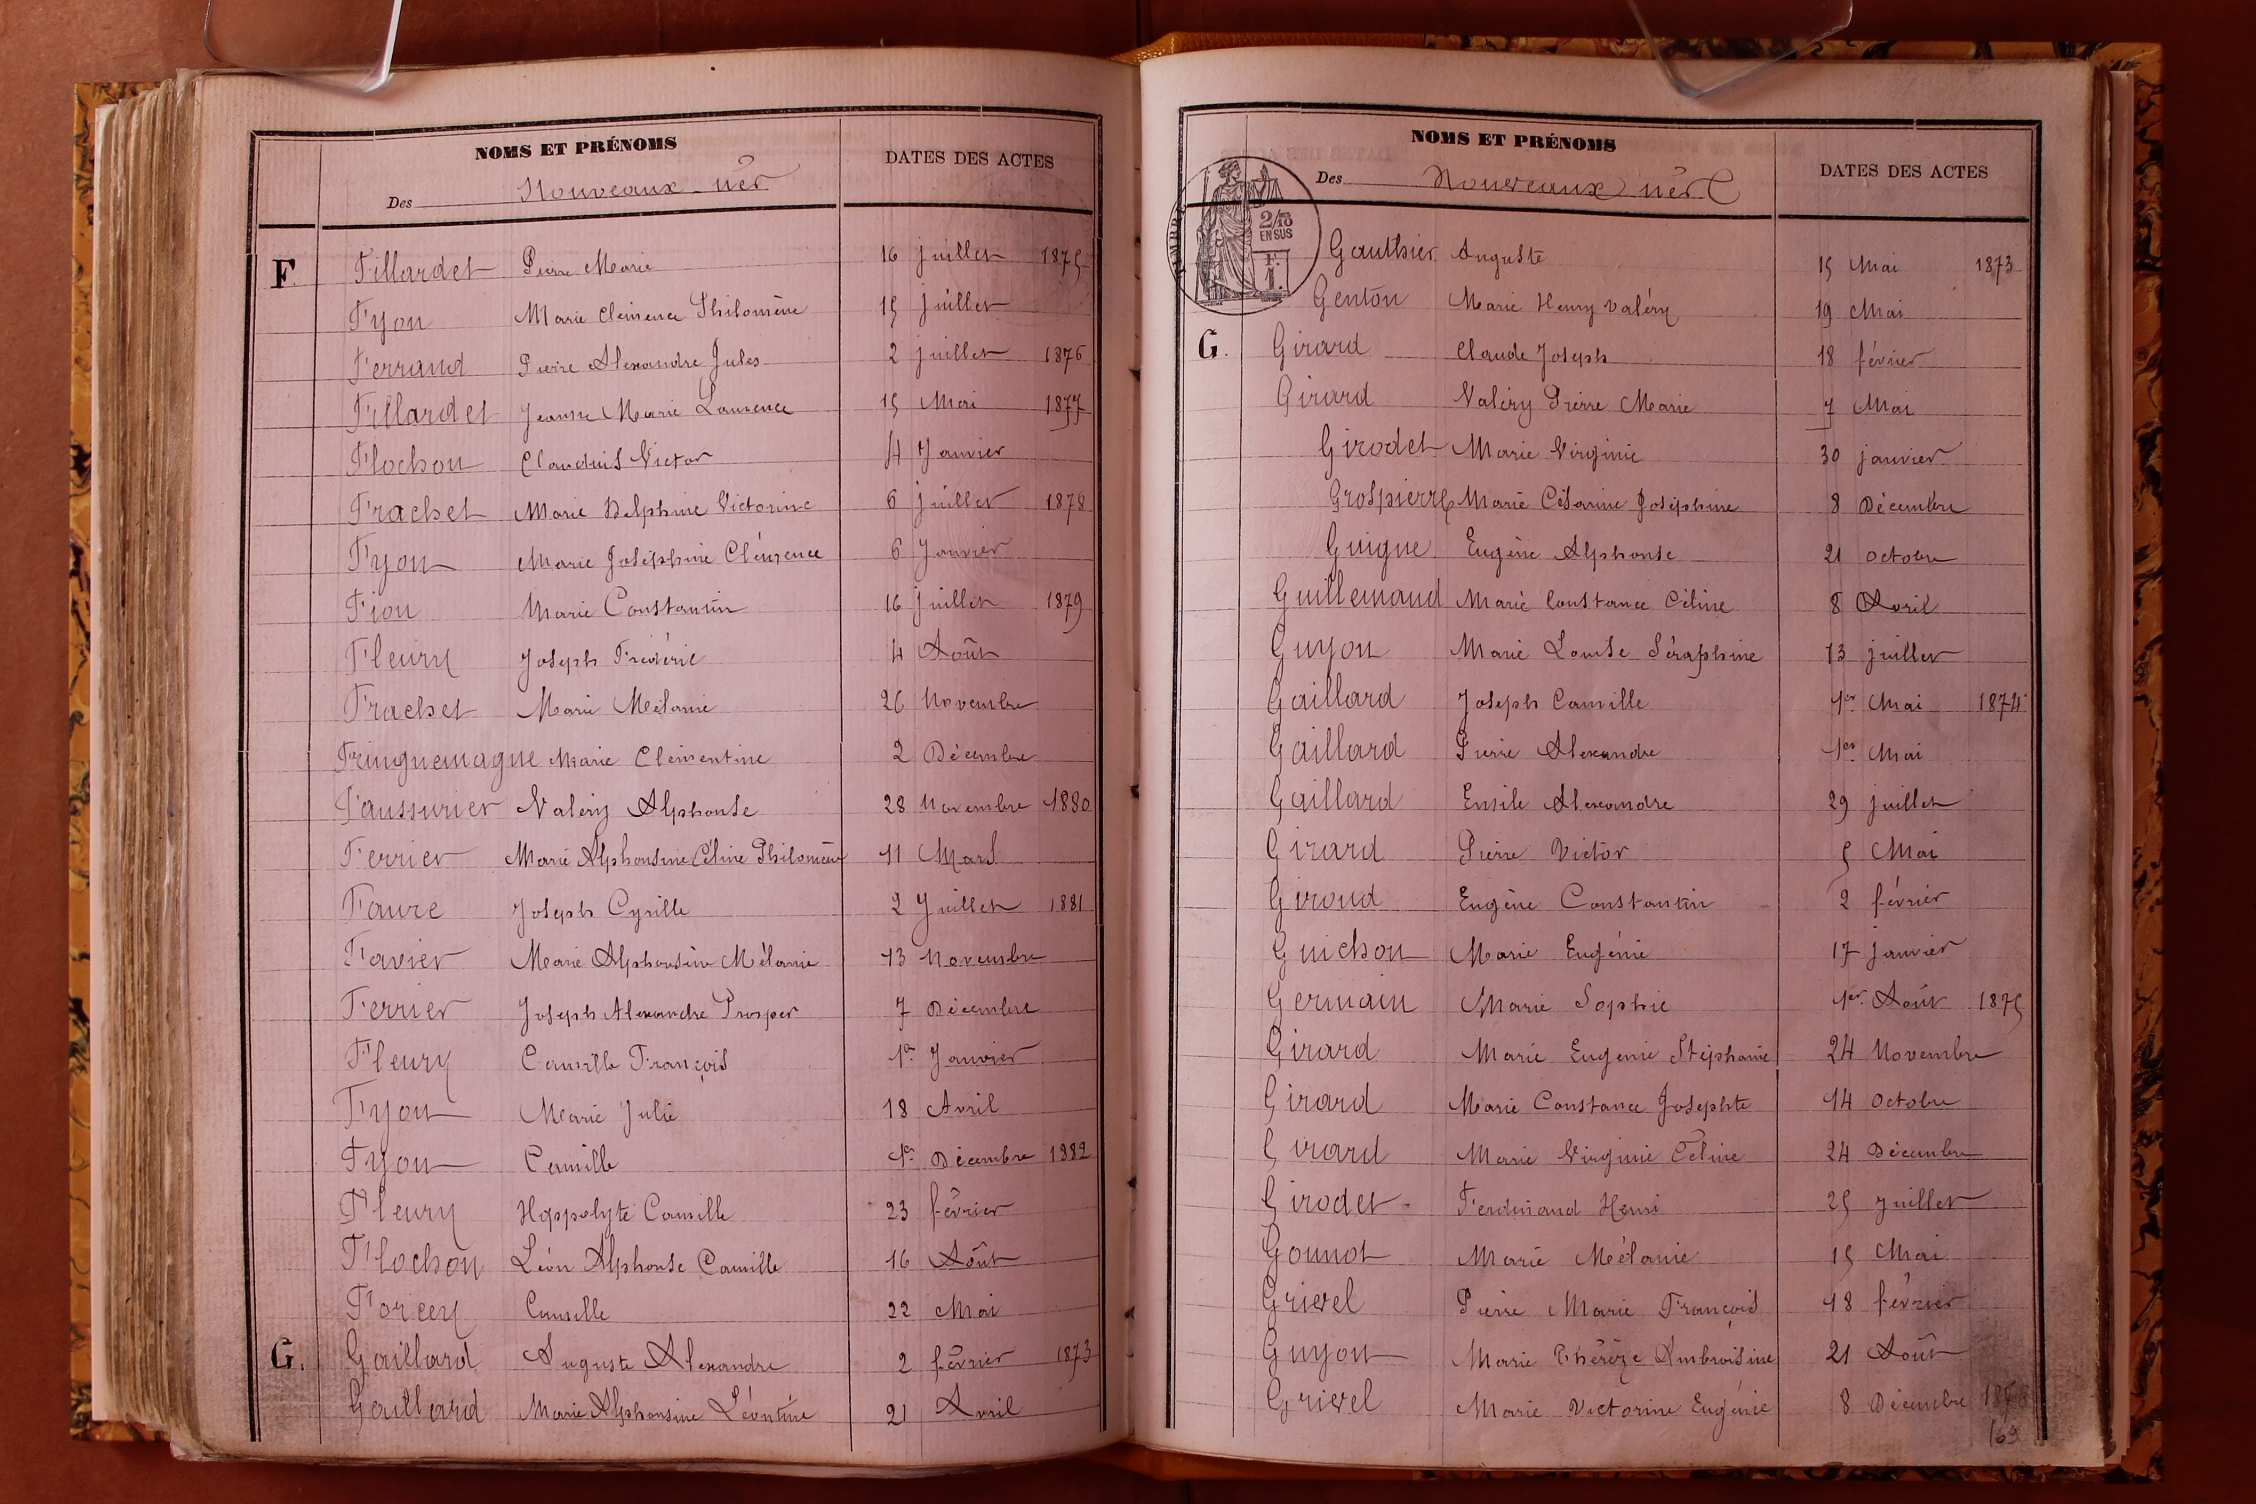 NOMS ET PRÉNOMS DATES DES ACTES
Des Nouveaux-nés
F. Fillardet Pierre Marie 16 juillet 1875
Fyon Marie Clémence Philomène 15 juillet
Ferrand Pierre Alexandre Jules 2 juillet 1876
Fillardet Jeanne Marie Laurence 15 Mai 1877
Flochon Claudius Victor 4 Janvier
Frachet Marie Delphine Victorine 6 juillet 1878
Fyon Marie Joséphine Clémence 6 Janvier
Fion Marie Constantin 16 juillet 1879
Fleury Joseph Fréderic 4 Août
Frachet Marie Mélanie 26 Novembre
Fringuemagne Marie Clémentine 2 Décembre
Faussurier Valéry Alphonse 28 Novembre 1880
Ferrier Marie Alphonsine Céline Philomène 11 Mars
Favre Joseph Cyrille 2 Juillet 1881
Favier Marie Alphonsine Mélanie 13 Novembre
Ferrier Joseph Alexandre Prosper 7 Décembre
Fleury Camille François 1er Janvier
Fyon Marie Julie 18 Avril
Fyon Camille 1er Décembre 1882
Fleury Hyppolyte Camille 23 février
Flochon Léon Alphonse Camille 16 Août
Forcey Camille 22 Mai
G. Gaillard Auguste Alexandre 2 février 1873
Gaillard Marie Alphonsine Léontine 21 Avril
NOMS ET PRÉNOMS DATES DES ACTES
Des Nouveaux nés
2/10 EN SUS
1 F.
Gauthier Auguste 15 Mai 1873
Genton Marie Henry Valéry 19 Mai
G. Girard Claude Joseph 18 février
Girard Valéry Pierre Marie 7 Mai
Girodet Marie Virginie 30 janvier
Grospierre Marie Césarine Joséphine 8 Décembre
Guigue Eugène Alphonse 21 octobre
Guillemaud Marie Constance Céline 8 Avril
Guyon Marie Louise Séraphine 13 juillet
Gaillard Joseph Camille 1er Mai 1874
Gaillard Pierre Alexandre 1er Mai
Gaillard Emile Alexandre 29 juillet
Girard Pierre Victor 5 Mai
Giroud Eugène Constantin 2 février
Guichon Marie Eugénie 17 janvier
Germain Marie Sophie 1er Août 1875
Girard Marie Eugénie Stéphanie 24 Novembre
Girard Marie Constance Josephte 14 octobre
Girard Marie Virginie Céline 24 Décembre
Girodet Ferdinand Henri 25 Juillet
Gounot Marie Mélanie 15 Mai
Grivel Pierre Marie François 18 février
Guyon Marie Thérèze Ambroisine 21 Août
Grivel Marie Victorine Eugénie 8 Décembre
169